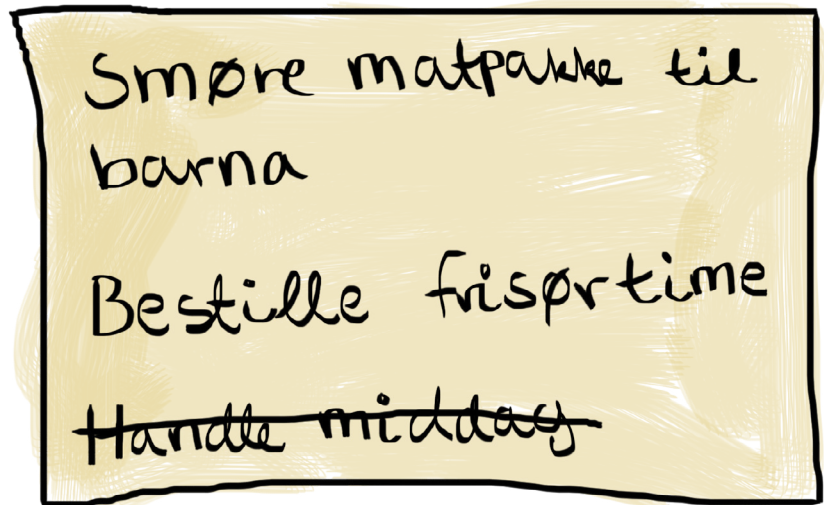 Smøre matpakke til
barna
Bestille frisørtime
Handle middag